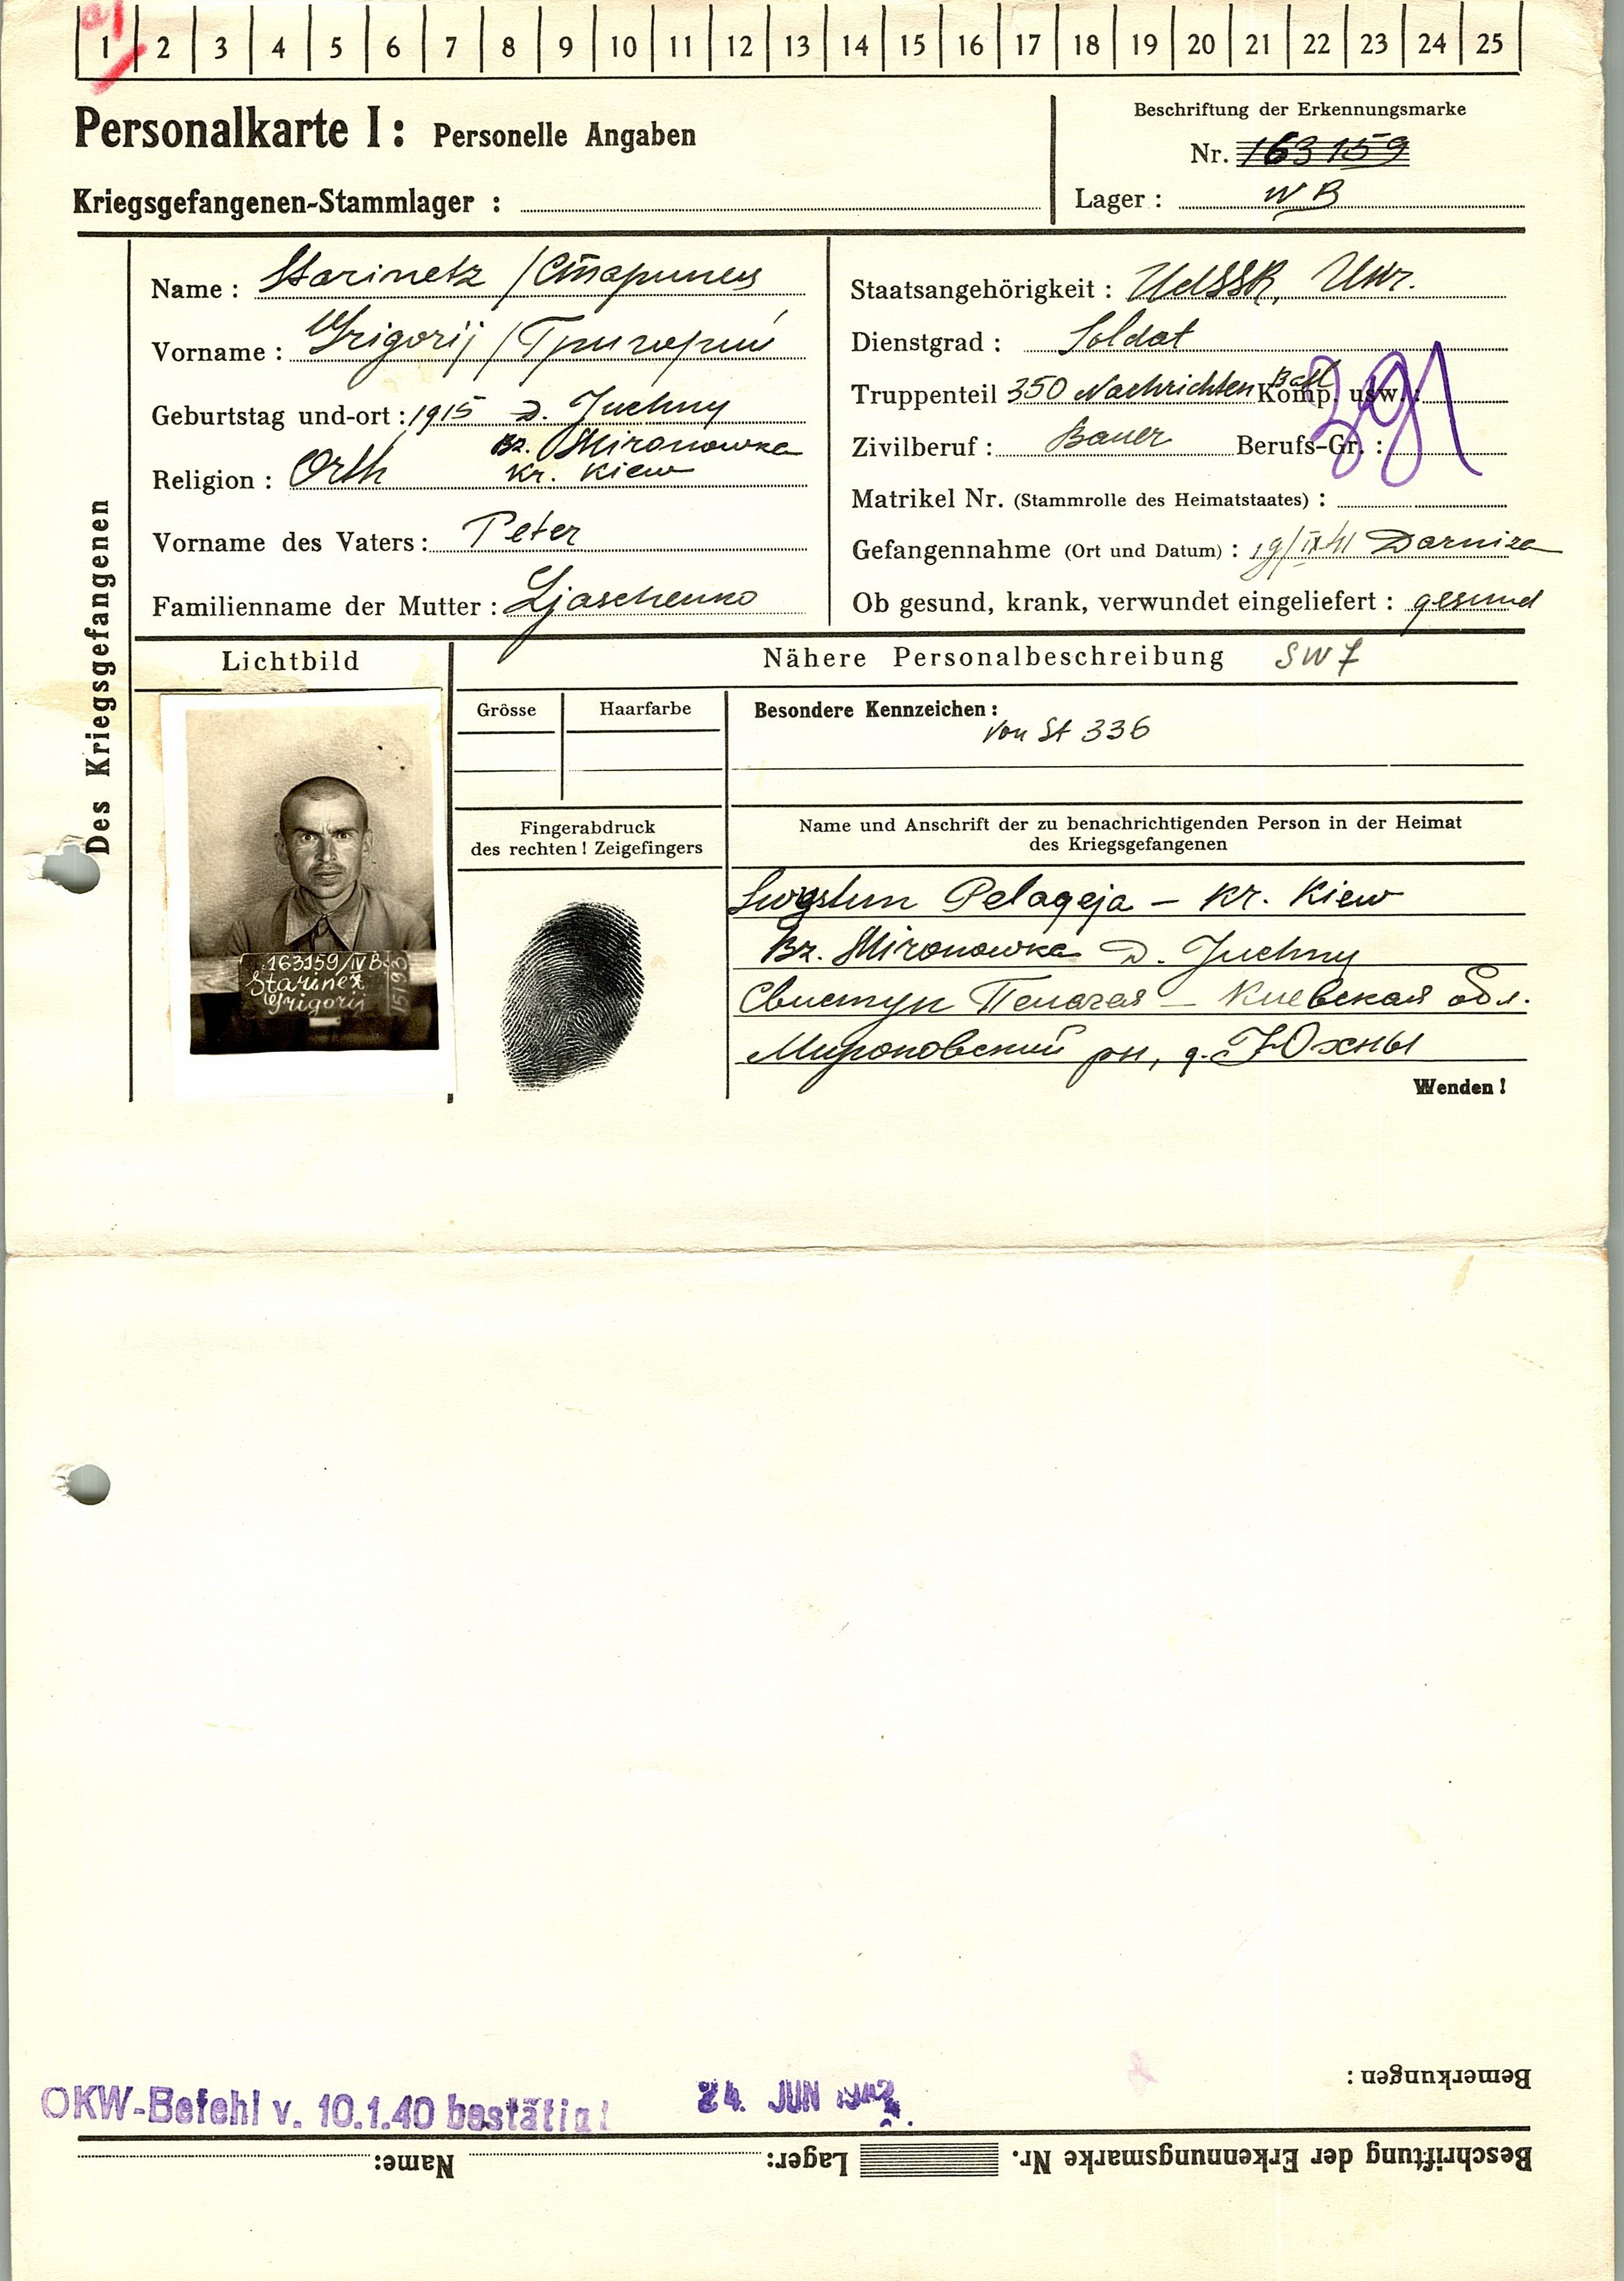 1 2 3 4 5 6 7 8 9 10 11 12 13 14 15 16 17 18 19 20 21 22 23 24 25
Personalkarte I: Personelle Angaben
Kriegsgefangenen-Stammlager :
Beschriftung der Erkennungsmarke
Nr. 163159
Lager : IV B
Des Kriegsgefangenen
Name : Starinetz / Старинец
Vorname : Grigorij / Григорий
Geburtstag und-ort : 1915 D. Juchny
Bz. Mironowka
Religion : Orth Kr. Kiew
Vorname des Vaters : Peter
Familienname der Mutter : Ljaschenko
Staatsangehörigkeit : UdSSR, Ukr.
Dienstgrad : Soldat
Truppenteil 350 Nachrichten Batl Komp. usw. :
Zivilberuf : Bauer Berufs-Gr. :
Matrikel Nr. (Stammrolle des Heimatstaates) :
Gefangennahme (Ort und Datum) : 19/IX 41 Darniza
Ob gesund, krank, verwundet eingeliefert : gesund
Lichtbild
Nähere Personalbeschreibung SW 7
Grösse
Haarfarbe
Besondere Kennzeichen :
von St 336
Fingerabdruck
des rechten ! Zeigefingers
Name und Anschrift der zu benachrichtigenden Person in der Heimat
des Kriegsgefangenen
Swystun Pelageja – Kr. Kiew
Bz. Mironowka D. Juchny
Свистун Пелагея – Киевская обл.
Мироновский рн, д. Юхны
Wenden !
163159/IV B
Starinez
Grigorij
Bemerkungen :
OKW-Befehl v. 10.1.40 bestätigt
24. JUN 1942
Beschriftung der Erkennungsmarke Nr. Lager: Name: